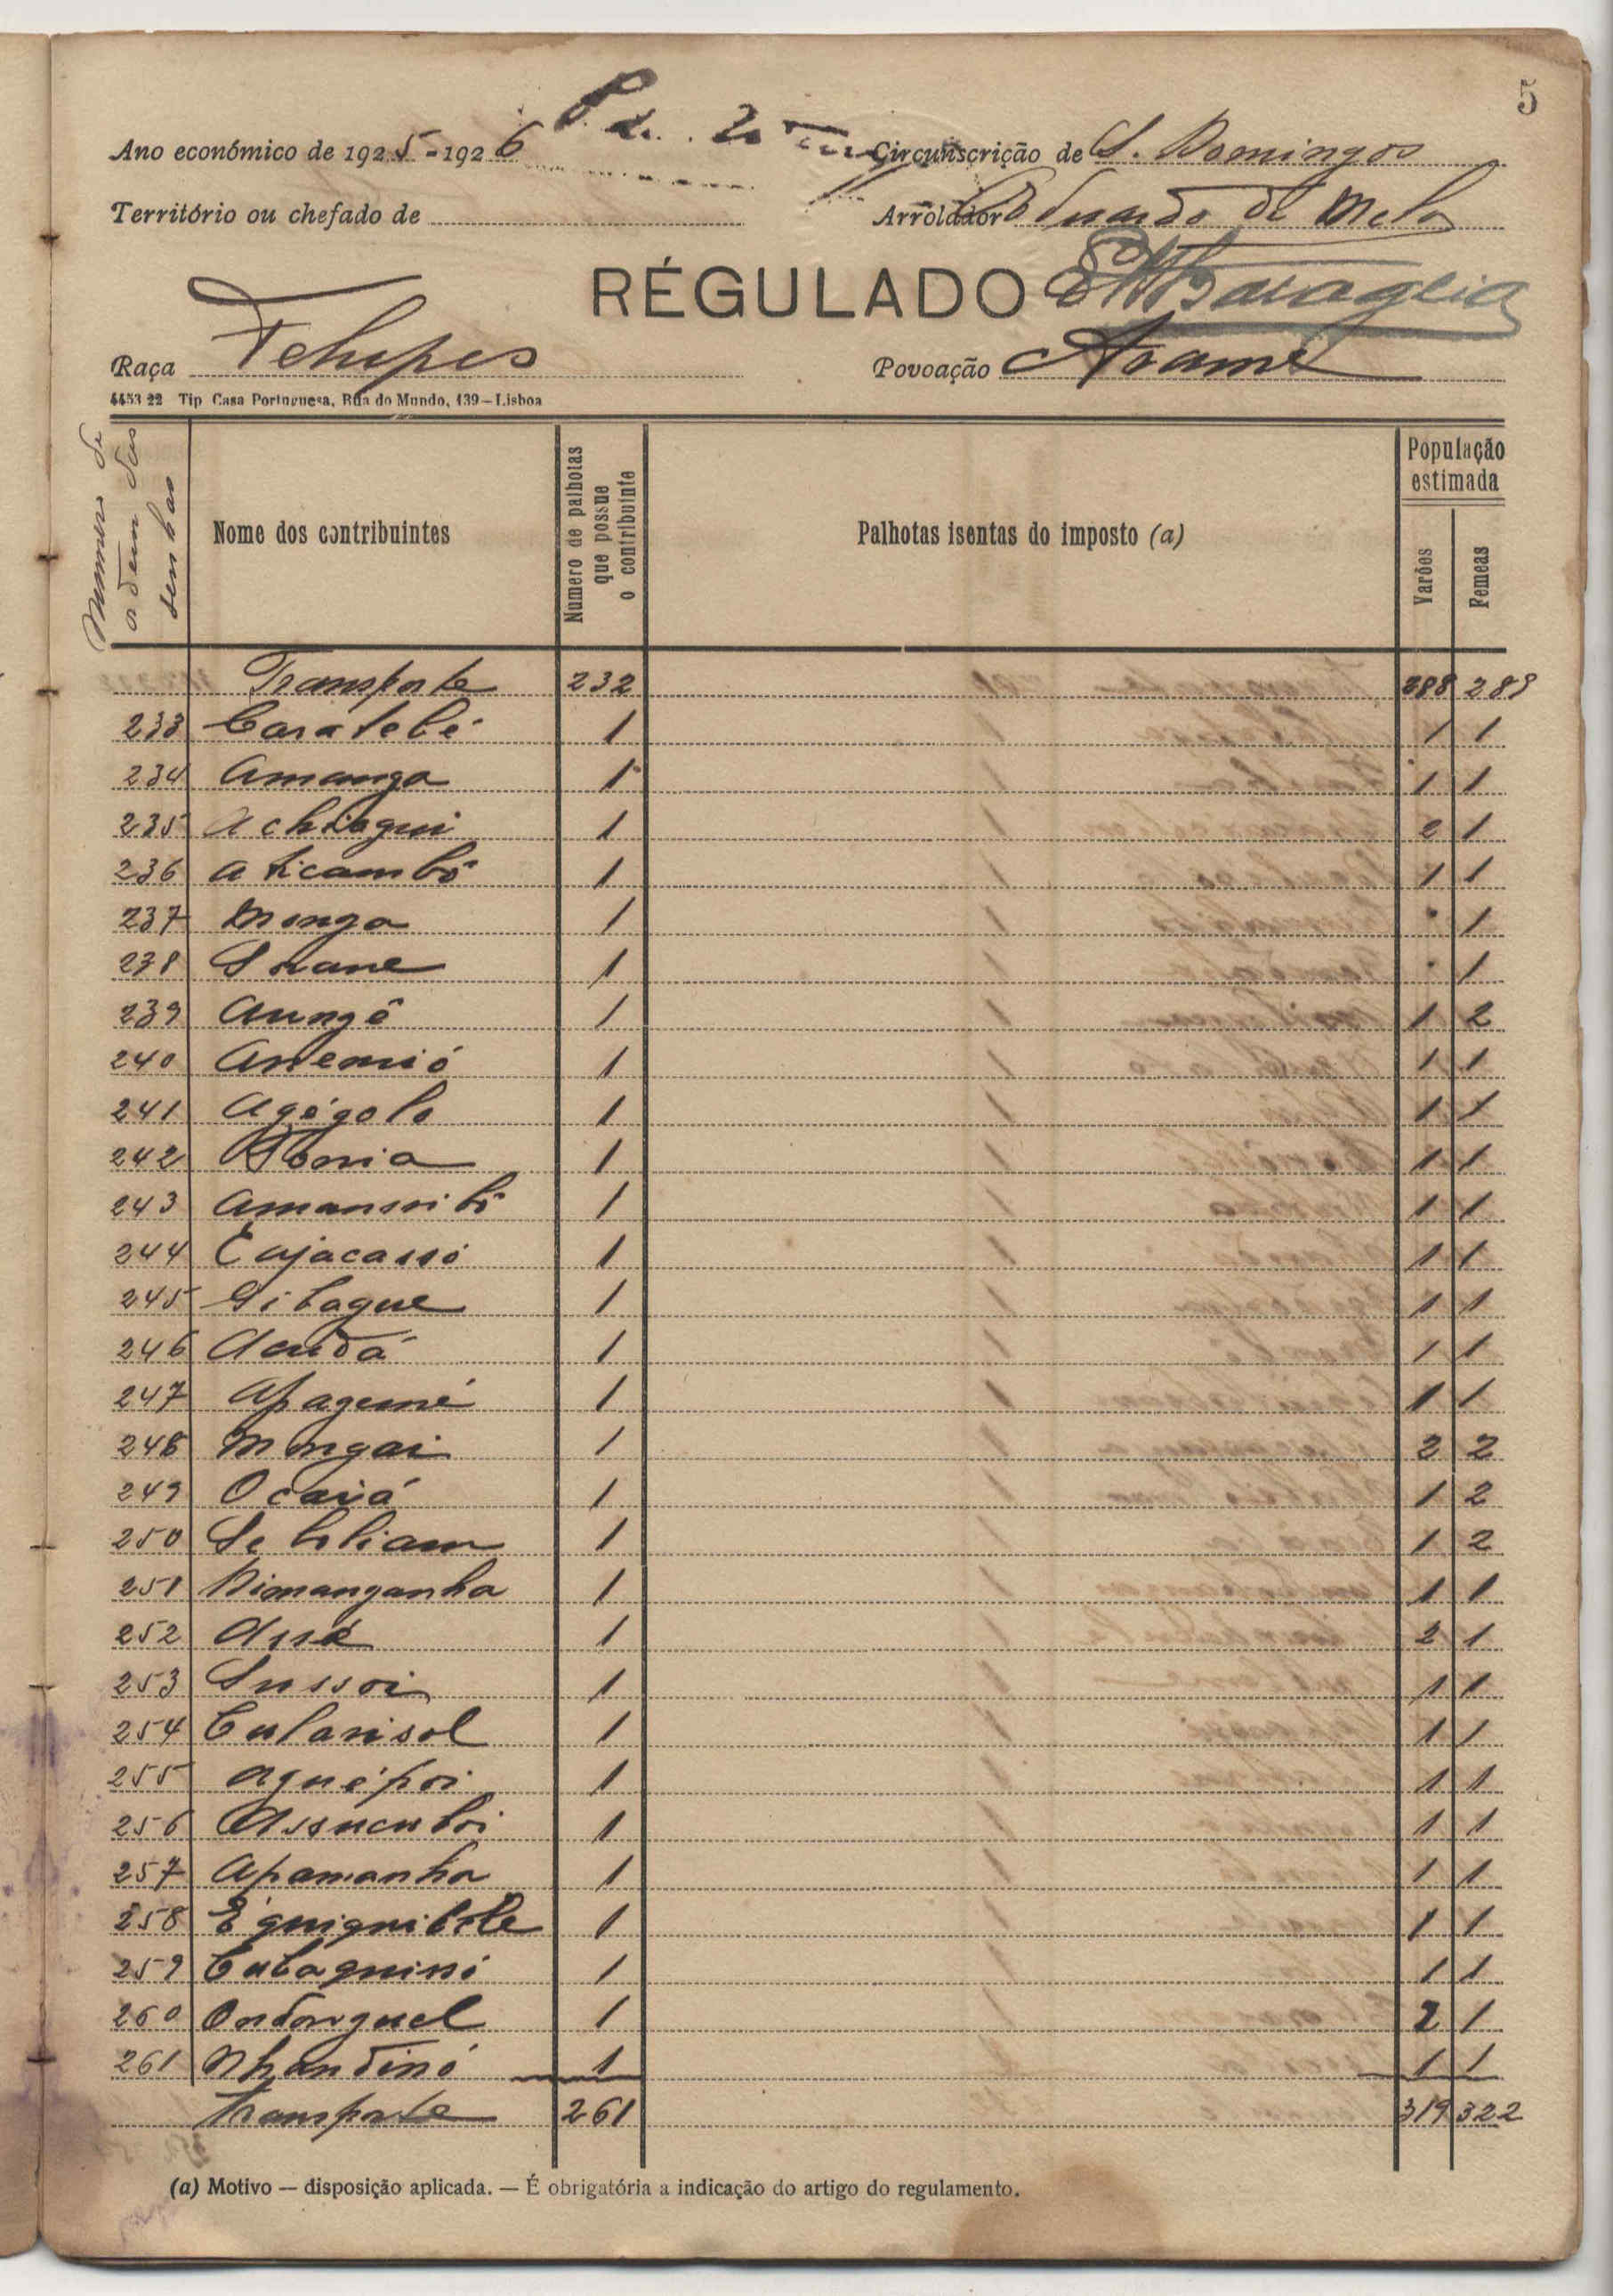 5
Ano económico de 1925-1926
Circunscrição de S. Domingos
Território ou chefado de
Arrolador Eduardo de Melo
RÉGULADO
Raça Felupes
Povoação Arame
4453 22 Tip Casa Portuguesa, Rua do Mundo, 139—Lisboa
Numero de ordem das senhas
Nome dos contribuintes
Numero de palhotas que possue o contribuinte
Palhotas isentas do imposto (a)
População estimada
Varões
Femeas
Transporte 232 288 289
233 Caratebé 1 1 1
234 Amanga 1 1 1
235 Achiogui 1 2 1
236 Aticambó 1 1 1
237 Monga 1 1
238 1 1
239 Aungô 1 1 2
240 Anemió 1 1 1
241 Agógolo 1 1 1
242 1 1 1
243 1 1 1
244 1 1 1
245 Gibague 1 1 1
246 Acudá 1 1 1
247 Apagumé 1 1 1
248 Mongai 1 2 2
249 Ocaiá 1 1 2
250 1 1 2
251 Dimanganha 1 1 1
252 1 2 1
253 Sussoi 1 1 1
254 Culanisol 1 1 1
255 Aguépoi 1 1 1
256 Assucuboi 1 1 1
257 Apamanha 1 1 1
258 1 1 1
259 1 1 1
260 1 2 1
261 Nhandinó 1 1 1
Transporte 261 319 322
(a) Motivo — disposição aplicada. — É obrigatória a indicação do artigo do regulamento.